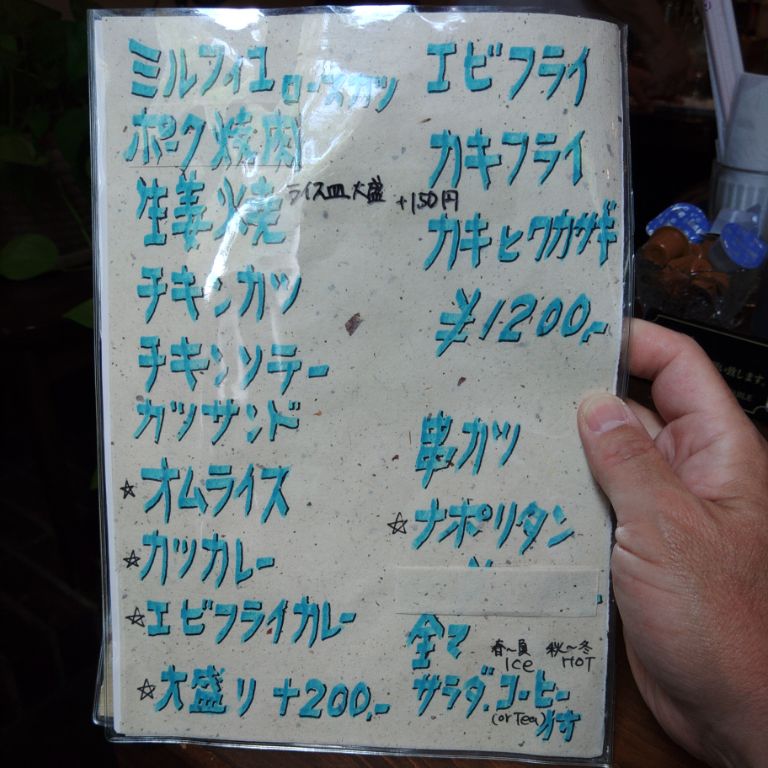 ミルフィユロースカツ
ポーク焼肉
生姜焼 ライス皿大盛 +150円
チキンカツ
チキンソテー
カツサンド
☆オムライス
☆カツカレー
☆エビフライカレー
☆大盛り +200,-
エビフライ
カキフライ
カキとワカサギ
¥1200,-
串カツ
☆ナポリタン
全て
春〜夏 秋〜冬
Ice HOT
サラダ、コーヒー
(or Tea)付
願します。